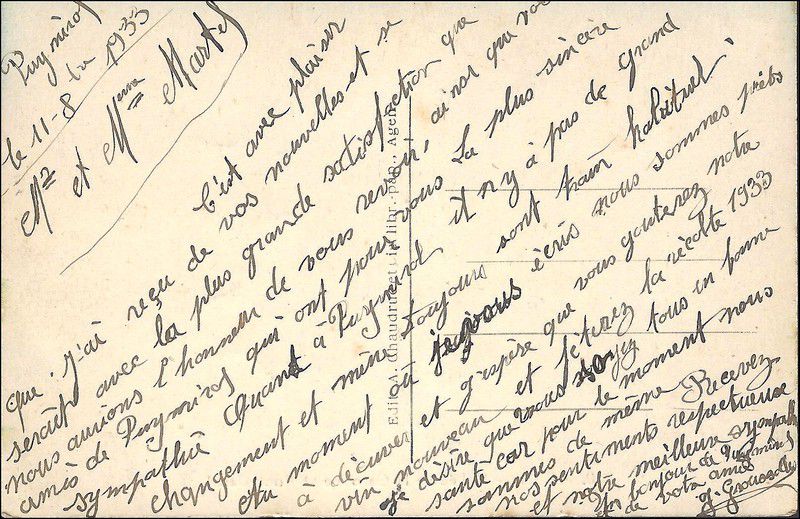 Puymirol
le 11-8 1933
Mr et Mme Martel
C'est avec plaisir
que j'ai reçu de vos nouvelles et se
serait avec la plus grande satisfaction que
nous aurions l'honneur de vous revoir, ainsi que vos
amis de Puymirol qui ont pour vous la plus sincère
sympathie Quant à Puymirol il n'y à pas de grand
changement et même toujours sont train habituel,
Au moment ou je vous écris nous sommes prêts
à décuver et j'espère que vous gouterez notre
vin nouveau et fêterez la récolte 1933
je désire que vous soyez tous en bonne
santé car pour le moment nous
sommes de même Recevez
nos sentiments respectueuse
et notre meilleure sympathie
Un bonjour de Puymirol
de votre amis
Edit. A. Chaudruc et Cie, libr.-pap., Agen